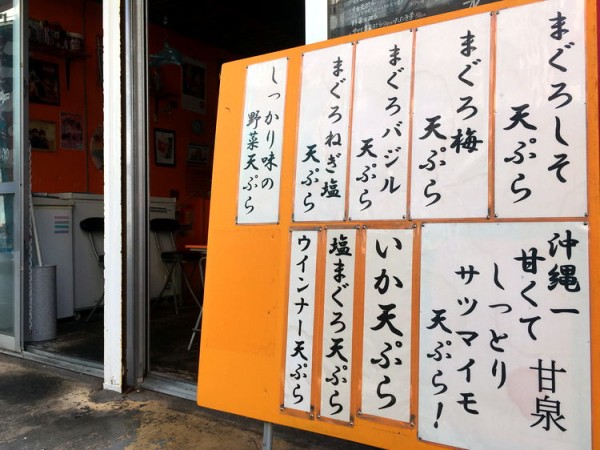 まぐろしそ
天ぷら
まぐろ梅
天ぷら
まぐろバジル
天ぷら
まぐろねぎ塩
天ぷら
しっかり味の
野菜天ぷら
沖縄一
甘くて
しっとり
甘泉
サツマイモ
天ぷら!
いか天ぷら
塩まぐろ天ぷら
ウインナー天ぷら